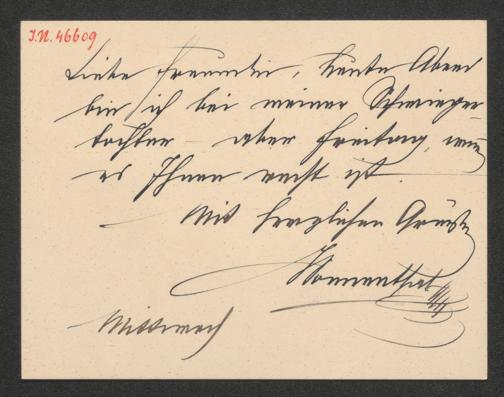 I.N. 46609
Liebe Freundin, heute Abend
bin ich bei meiner Schwieger
tochter – aber Freitag, wenn
es Ihnen recht ist.
Mit herzlichen Grüßen
Sonnenthal
Mittwoch